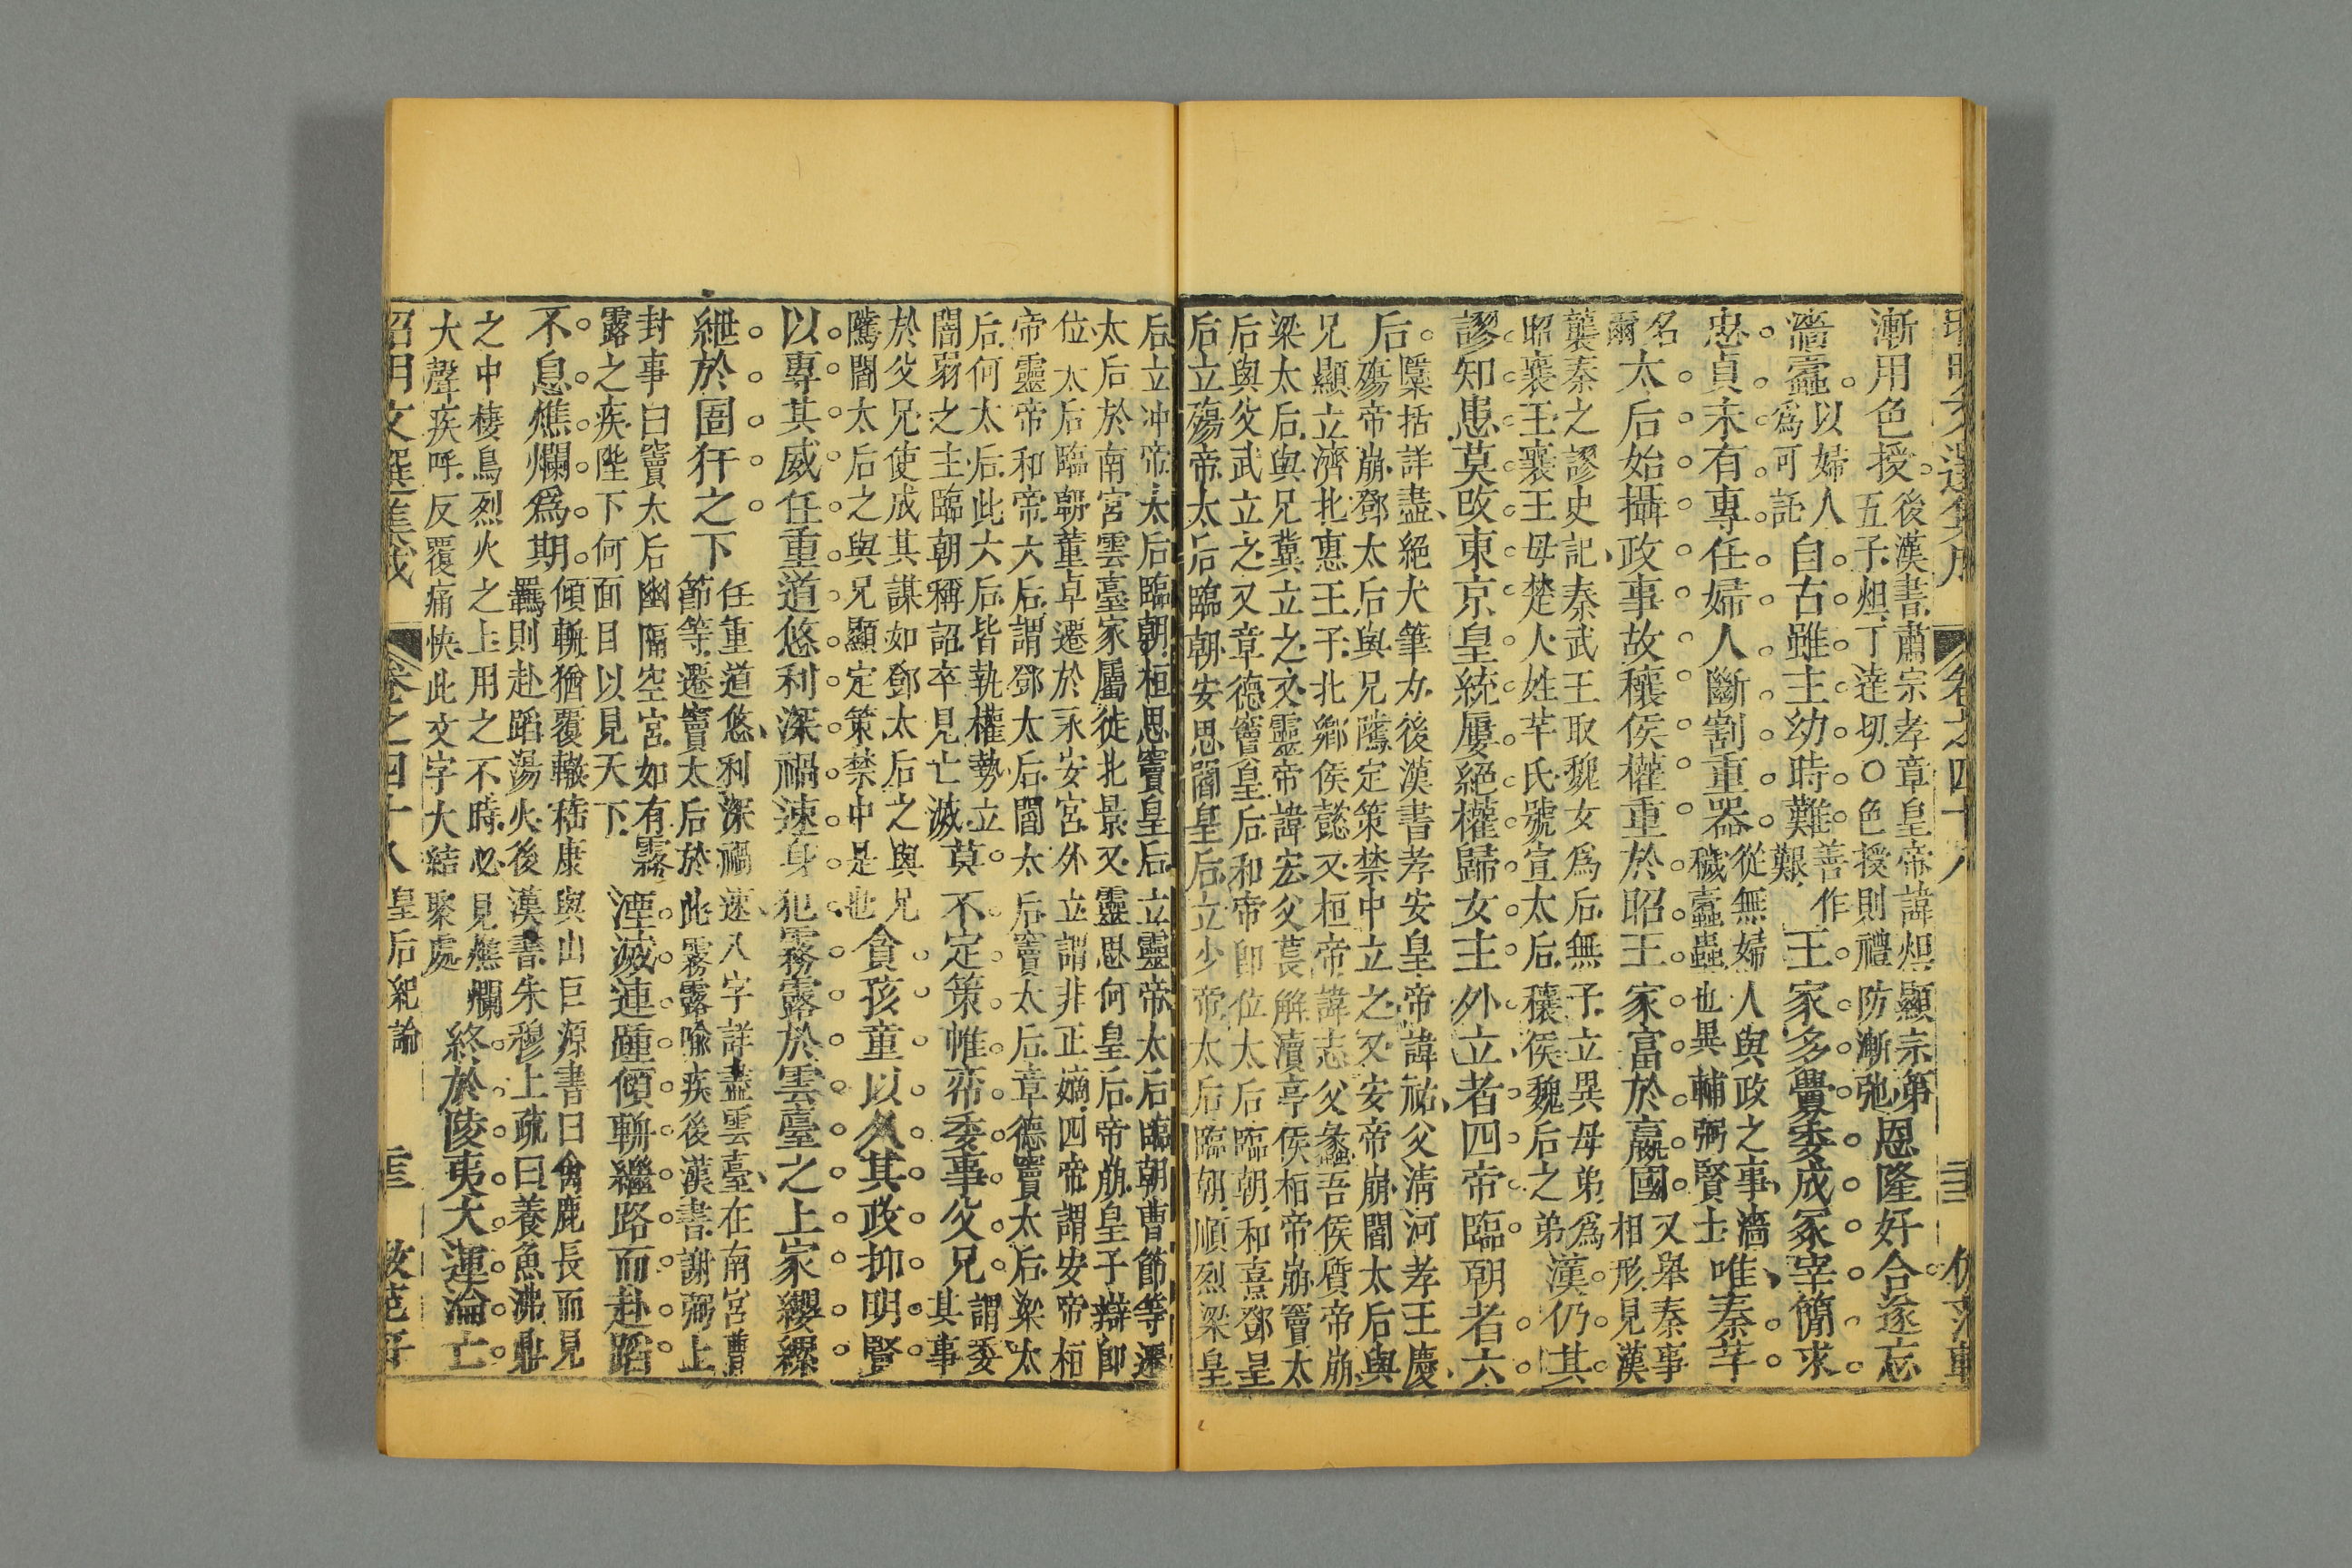 漸用色授後漢書肅宗孝章皇帝諱炟顯宗第恩隆好合遂忘
五子炟丁達切○色授則禮防漸弛
淄蠹以婦人善作
爲可託自古雖主幼時難艱王家多釁委成冢宰簡求
忠貞未有專任婦人斷割重器從無婦人與政之事淄唯秦羋
穢蠹蟲也異輔弼賢士
名太后始攝政事故穰侯權重於昭王家富於嬴國又舉秦事
爾相形見漢
襲秦之謬史記秦武王取魏女爲后無子立異母弟爲漢仍其
昭襄王襄王母楚人姓羋氏號宣太后穰侯魏后之弟
謬知患莫改東京皇統屢絕權歸女主外立者四帝臨朝者六
后檃括詳盡絕大筆力後漢書孝安皇帝諱祐父清河孝王慶
殤帝崩鄧太后與兄騭定策禁中立之又安帝崩閻太后與
兄顯立濟北惠王子北鄉侯懿又桓帝諱志父蠡吾侯質帝崩
梁太后與兄冀立之又靈帝諱宏父萇解瀆亭侯桓帝崩竇太
后與父武立之又章德竇皇后和帝卽位太后臨朝和熹鄧皇
后立殤帝太后臨朝安思閻皇后立少帝太后臨朝順烈梁皇
后立沖帝太后臨朝桓思竇皇后立靈帝太后臨朝曹節等遷
太后於南宮雲臺家屬徙北景又靈思何皇后帝崩皇子辯卽
位太后臨朝董卓遷於永安宮外立謂非正嫡四帝謂安帝桓
帝靈帝和帝六后謂鄧太后閻太后竇太后章德竇太后梁太
后何太后此六后皆執權勢立莫不定策帷帟委事父兄謂委
閻弱之主臨朝稱詔卒見亡滅其事
於父兄使成其謀如鄧太后之與兄貪孩童以久其政抑明賢
騭閻太后之與兄顯定策禁中是也
以專其威任重道悠利深禍速身犯霧露於雲臺之上家纓縲
紲於圄犴之下任重道悠利深禍速八字詳盡雲臺在南宮曹
節等遷竇太后於此霧露喻疾後漢書謝弼上
封事曰竇太后幽隔空宮如有霧湮滅連踵傾輈繼路而赴蹈
露之疾陛下何面目以見天下
不息燋爛爲期傾輈猶覆轍嵇康與山巨源書曰禽鹿長而見
羈則赴蹈湯火後漢書朱穆上疏曰養魚沸鼎
之中棲鳥烈火之上用之不時必見燋爛終於陵夷大運淪亡
大聲疾呼反覆痛快此文字大結聚處
昭明文選集成 卷之四十八 皇后紀論